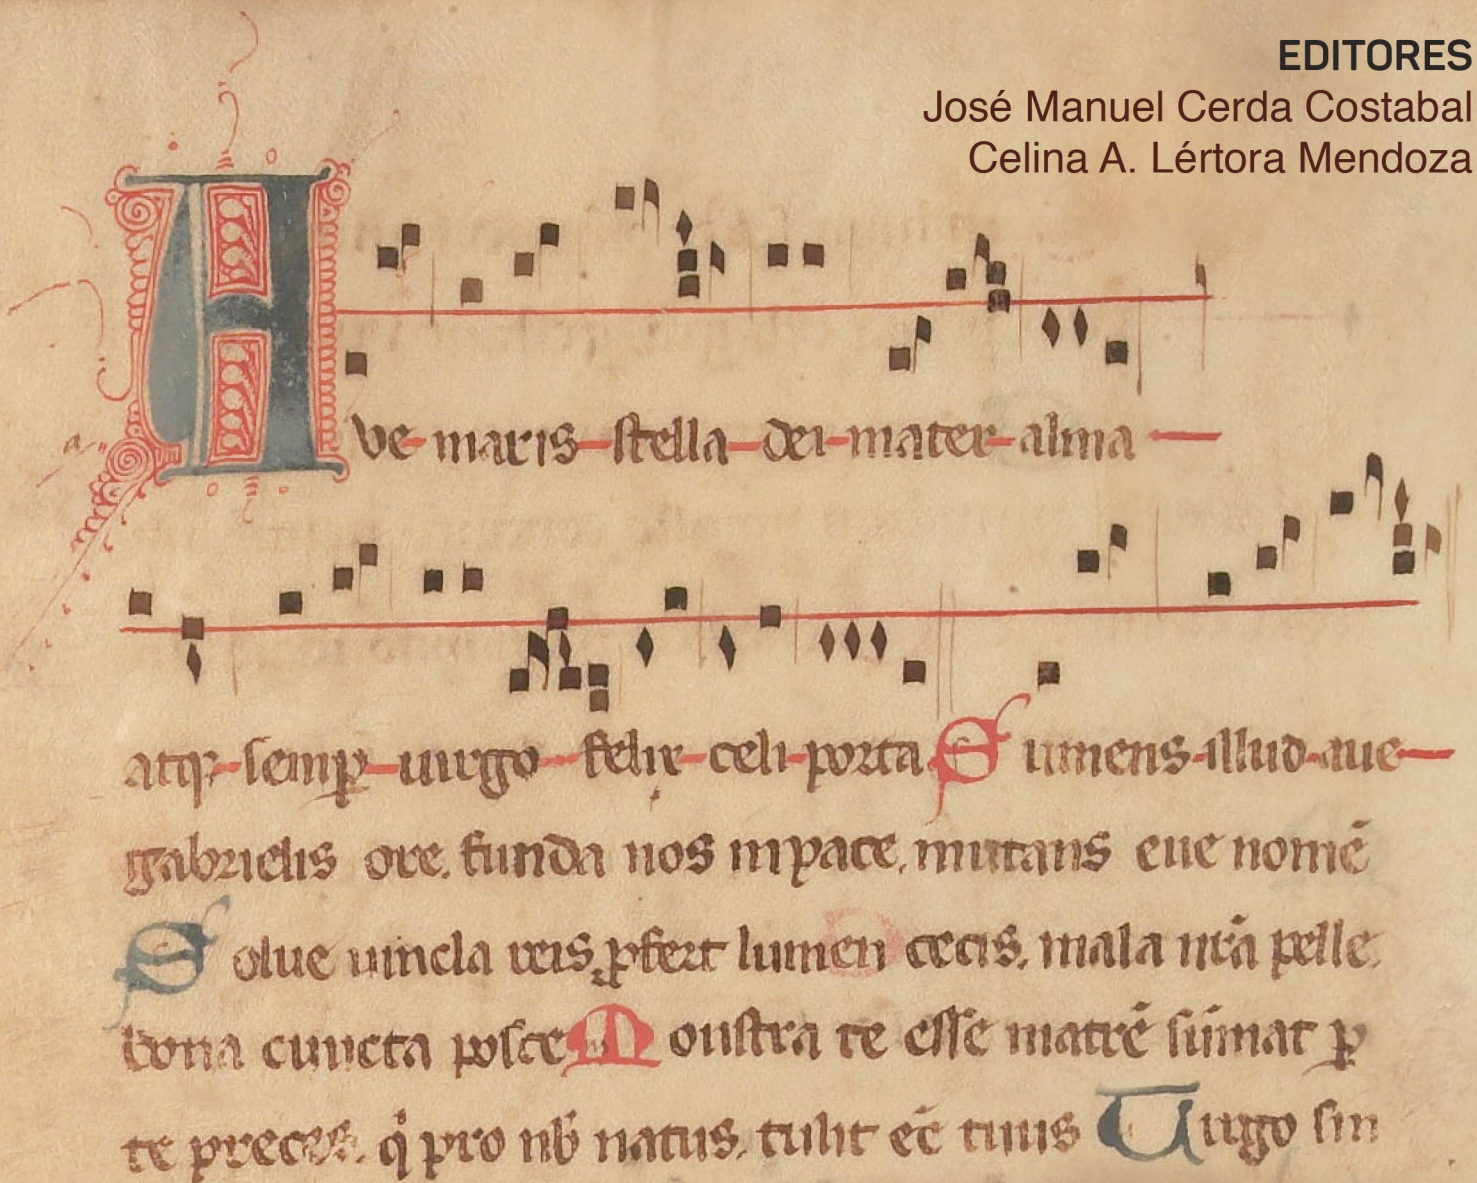 EDITORES
José Manuel Cerda Costabal
Celina A. Lértora Mendoza
Ave maris stella dei mater alma
atqꝫ semꝑ uirgo felix celi porta Sumens illud aue
gabrielis ore. funda nos in pace. mutans eue nomē
Solue uincla reis. ꝓfert lumen cecis. mala nr̄a pelle.
bona cuncta posce Monstra te esse matrē sūmat ꝑ
te preces. q̇ pro nob̄ natus. tulit eē tuus Uirgo sin